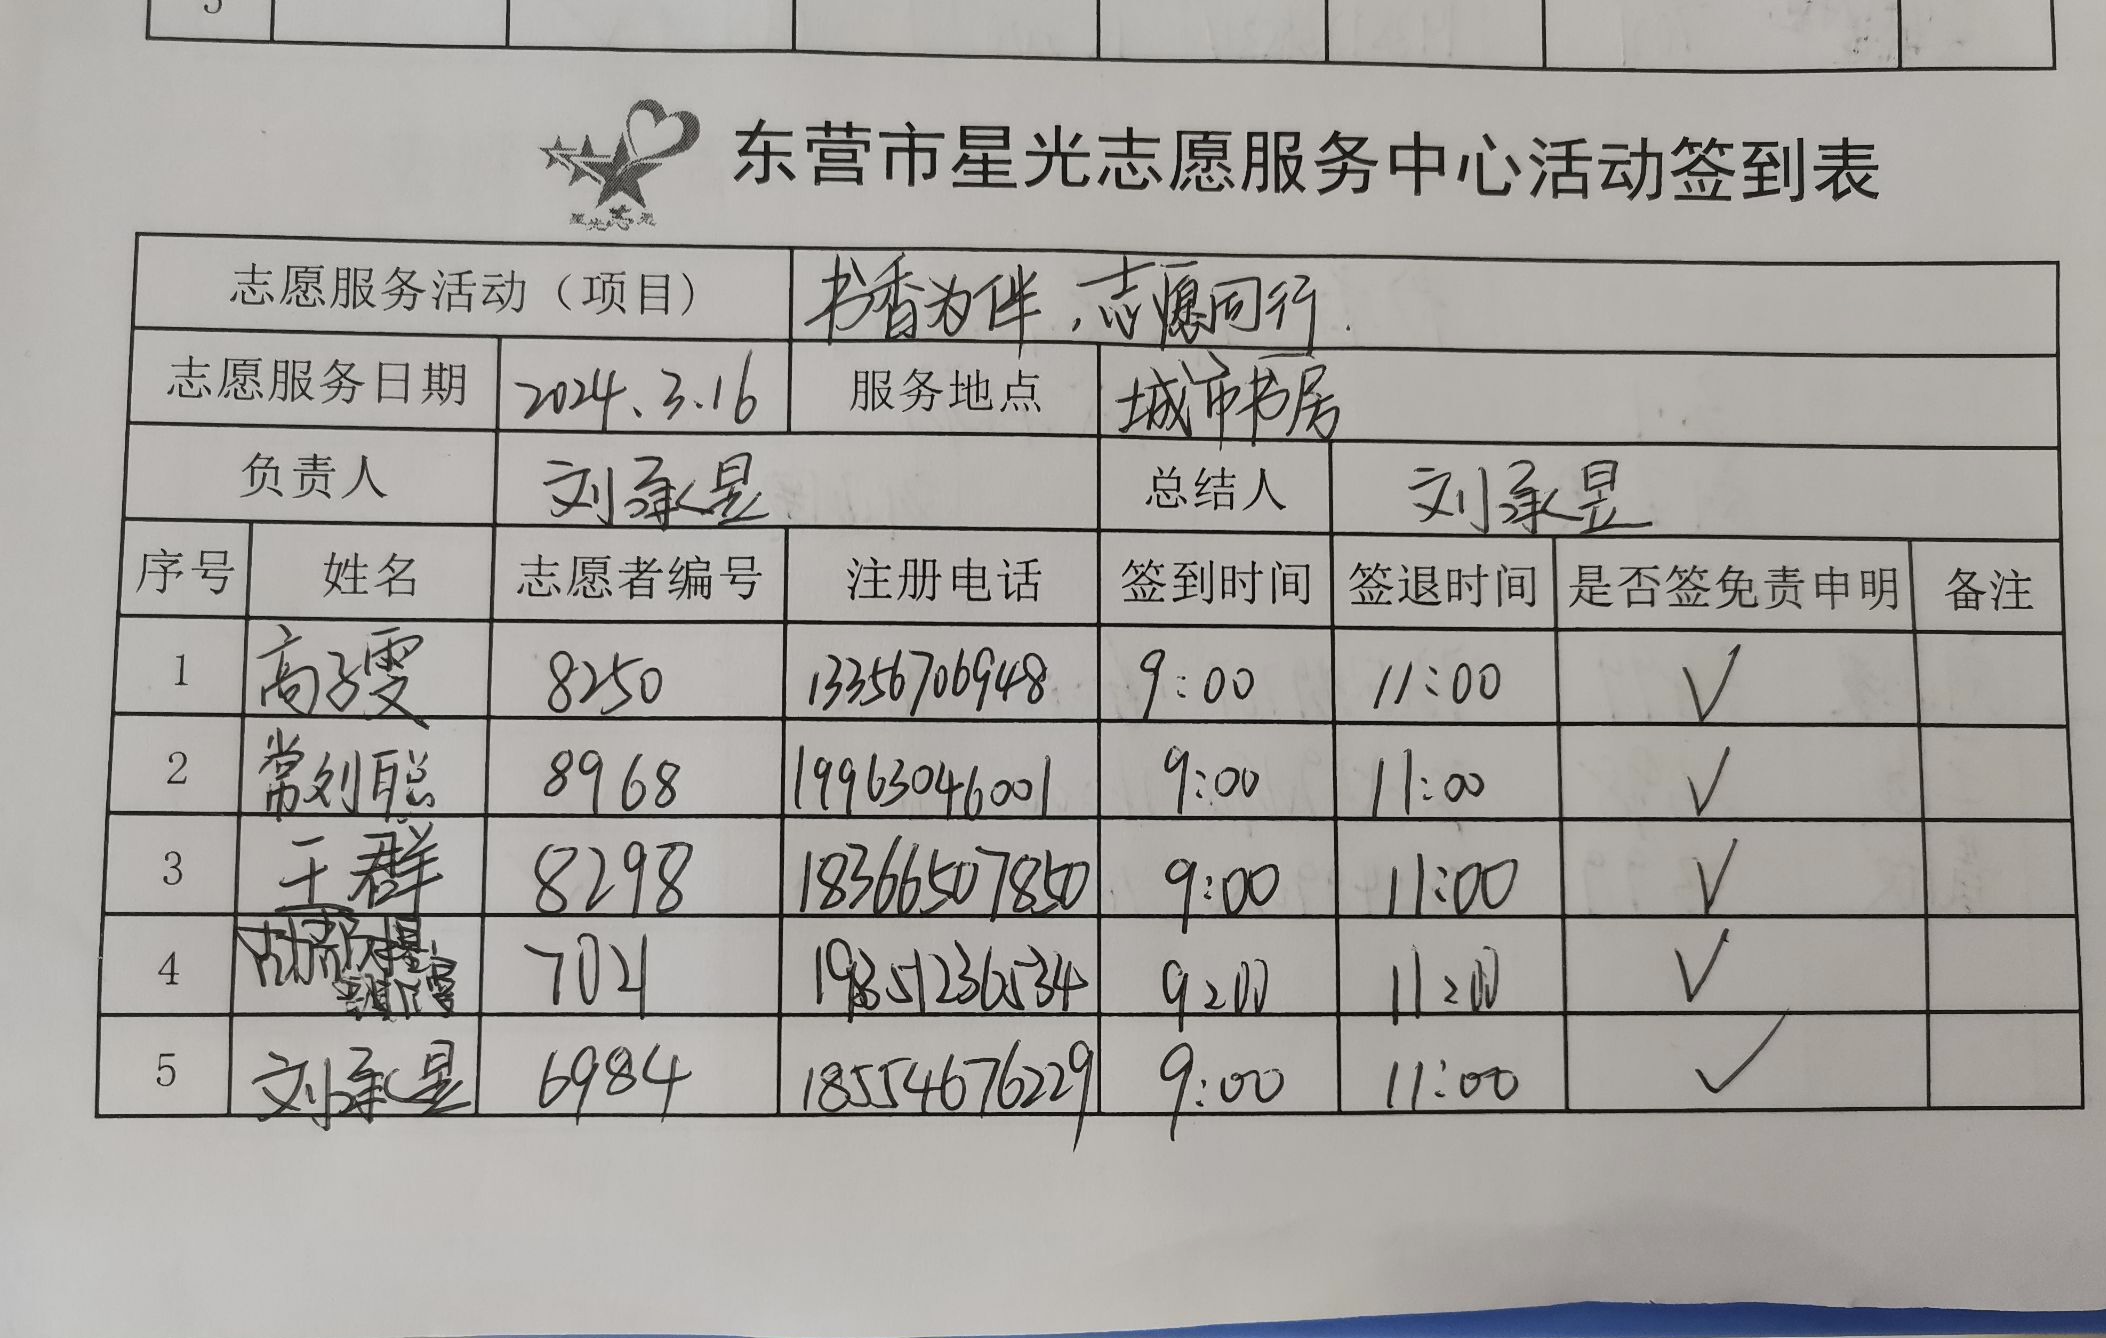 5
东营市星光志愿服务中心活动签到表
志愿服务活动（项目） 书香为伴，志愿同行.
志愿服务日期 2024.3.16 服务地点 城市书房
负责人 刘承昱 总结人 刘承昱
序号 姓名 志愿者编号 注册电话 签到时间 签退时间 是否签免责申明 备注
1 高子雯 8250 13356706948 9:00 11:00 √
2 常刘聪 8968 19963046001 9:00 11:00 √
3 王群 8298 18366507850 9:00 11:00 √
4 7021 9:00 11:00 √
5 刘承昱 6984 18554676229 9:00 11:00 √